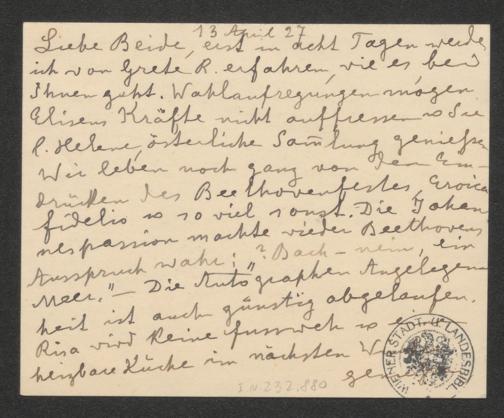 13 April 27
Liebe Beide, erst in acht Tagen werde
ich von Grete R. erfahren, wie es bei
Ihnen geht. Wahlaufregungen mögen
Elisens Kräfte nicht auffressen u Sie
l. Helene, österliche Sam̅lung genießen
Wir leben noch ganz von den Ein-
drücken des Beethovenfestes, Eroica
fidelio u so viel sonst. Die Johan
nespassion machte wieder Beethovens
Ausspruch wahr: "? Bach – nein, ein
Meer." – Die Autographen Angelegen
heit ist auch günstig abgelaufen.
Risa wird keine fussweh u
heizbare Küche im nächsten
I.N. 232.880
WIENER STADT. U. LANDESBIBL.